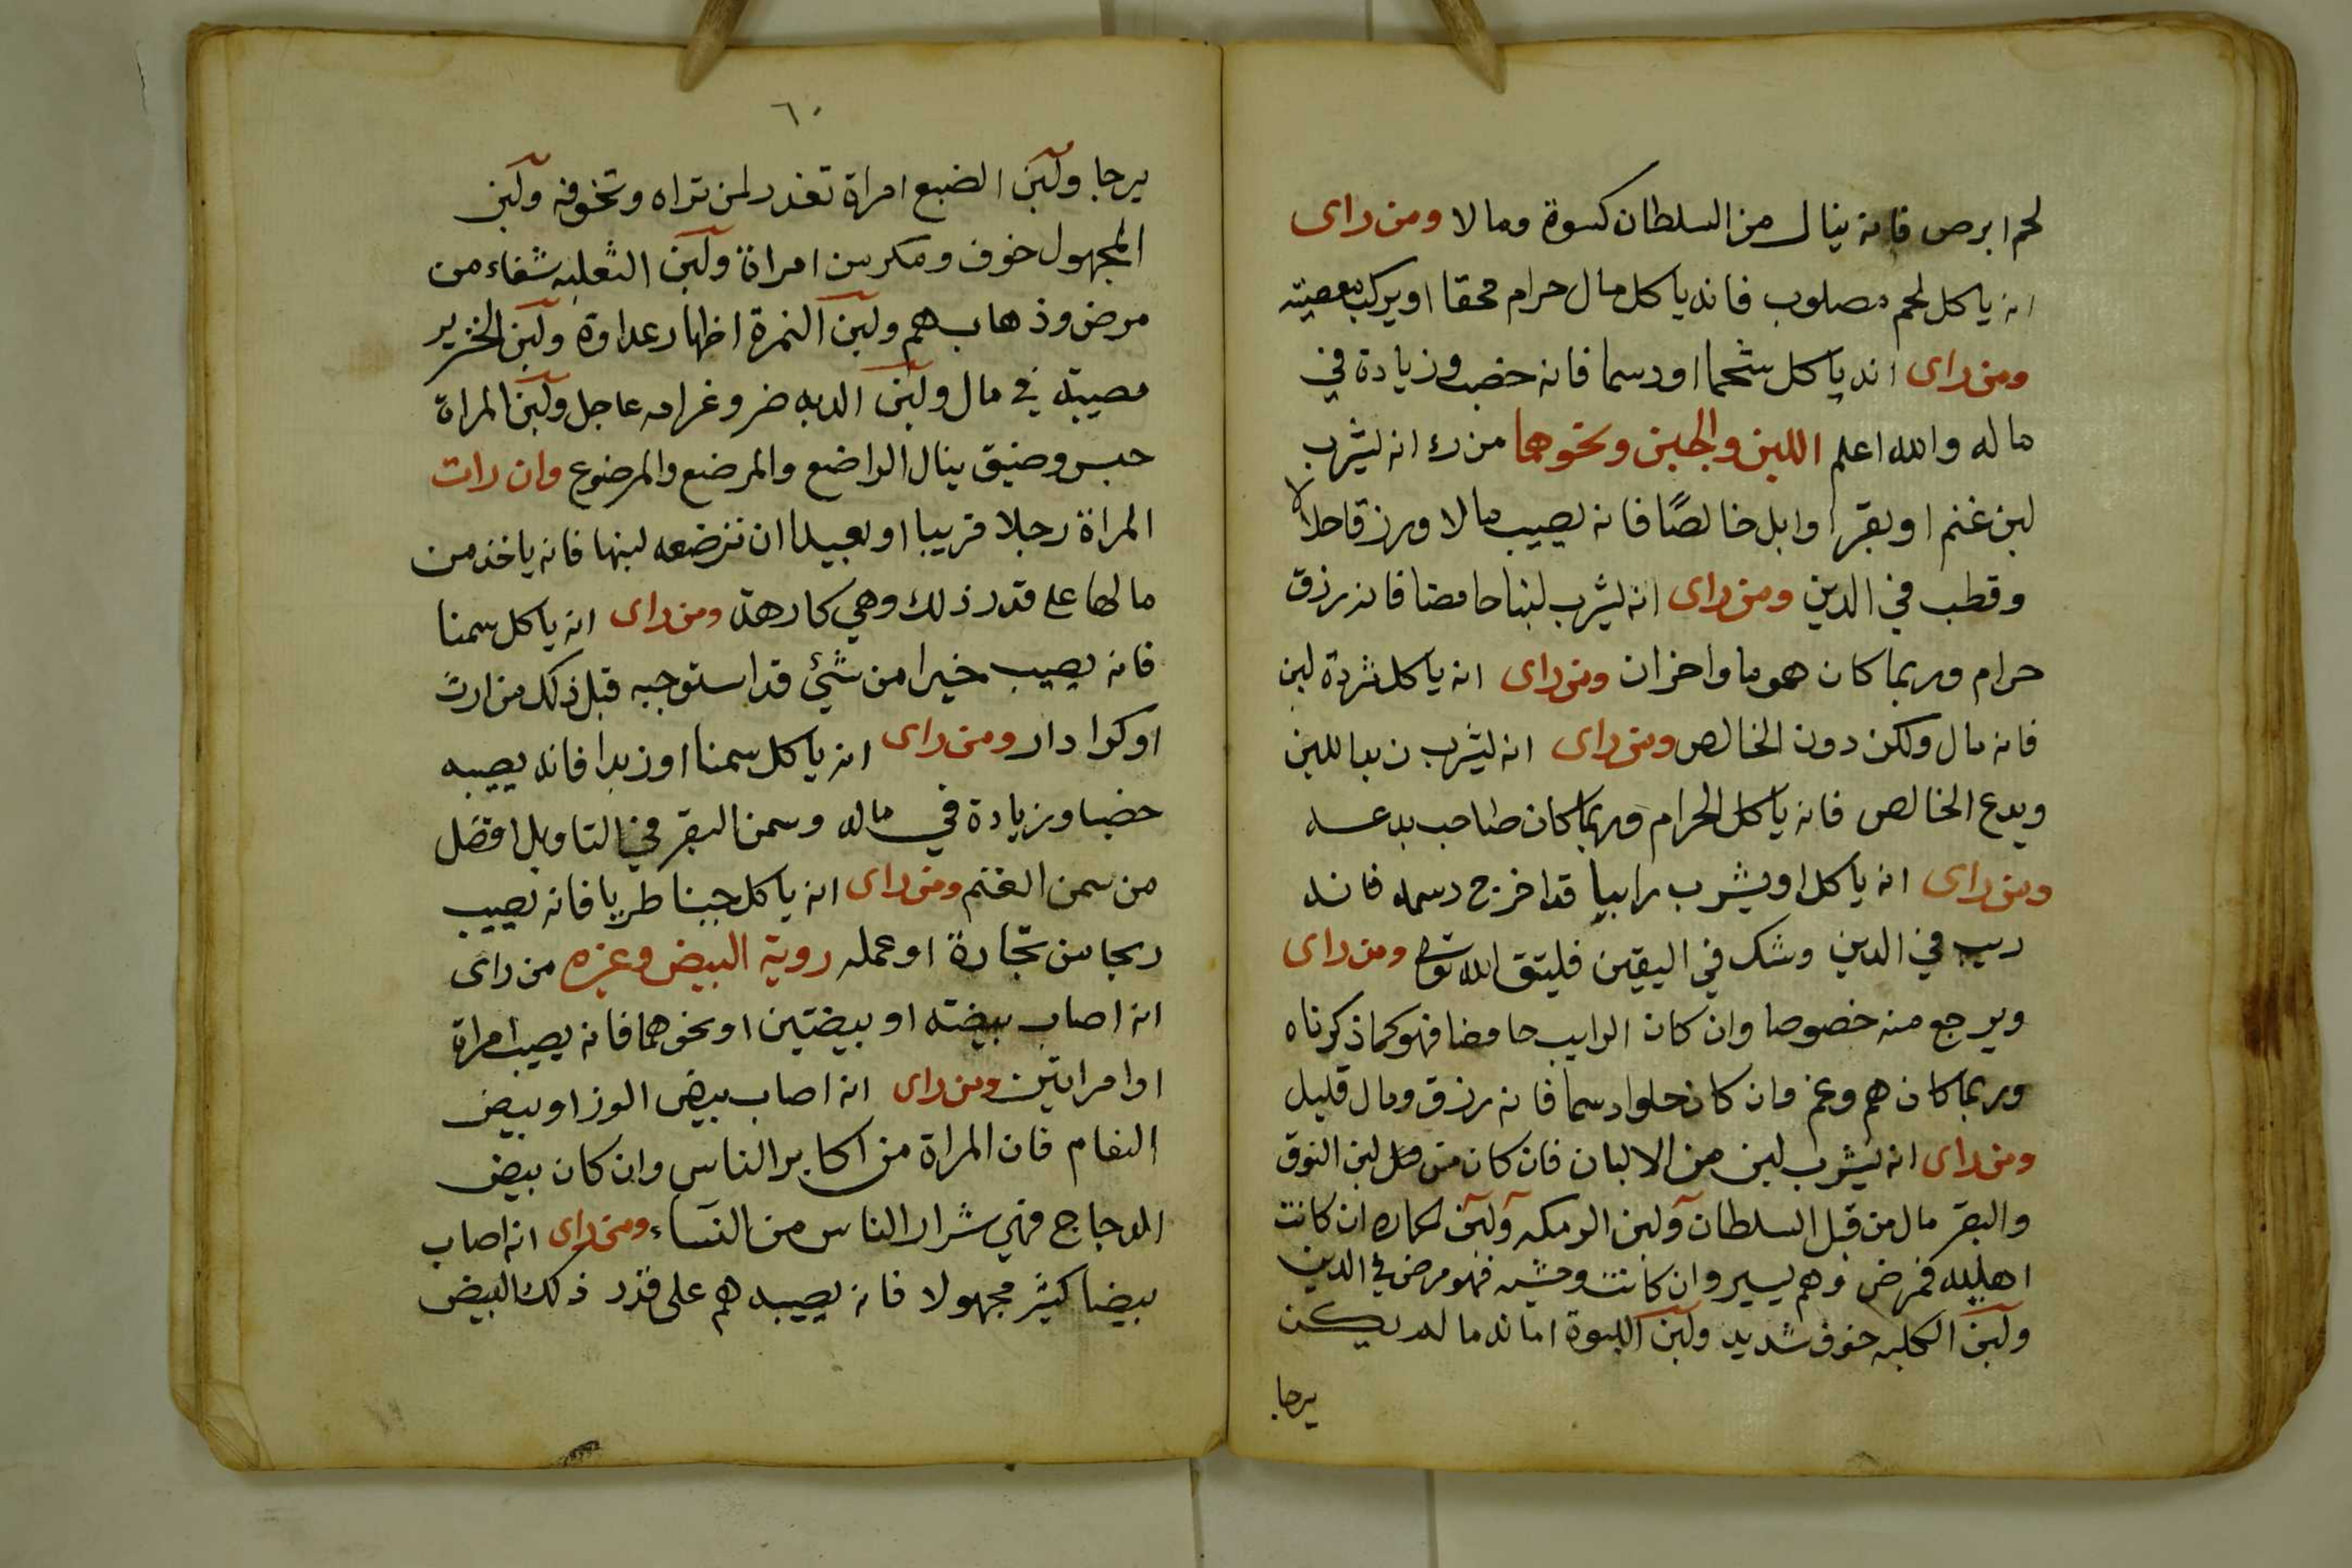 لحم ابرص فانه ينال من السلطان كسوة ومالا ومن راى
انه ياكل لحم مصلوب فانه ياكل مال حرام محقا او يركب معصيته
ومن راى انه ياكل شحما او دسما فانه خصب وزيادة في
ماله والله اعلم اللبن والجبن ونحوهما من رء انه ليشرب
لبن غنم او بقر او ابل خالصًا فانه يصيب مالا ورزقا حلالا
وقطب في الدين ومن راى انه ليشرب لبنا حامضا فانه رزق
حرام وربما كان هموما واحزان ومن راى انه ياكل ثردة لبن
فانه مال ولكن دون الخالص ومن راى انه ليشرب زبد اللبن
ويدع الخالص فانه ياكل الحرام وربما كان صاحب بدعه
ومن راى انه ياكل او يشرب رايبا قد اخرج دسمه فانه
ريب في الدين وشك في اليقين فليتق الله تعالى ومن راى
ويرجع منه خصوصا وان كان الرايب حامضا فهو كما ذكرناه
وربما كان هم وغم وان كان حلوا دسما فانه رزق ومال قليل
ومن راى انه ليشرب لبن من الالبان فان كان من لبن النوق
والبقر مال من قبل السلطان ولبن الرمكه ولبن الحماره ان كانت
اهليله فمرض وهم يسير وان كانت وحشيه فهو مرض في الدين
ولبن الكلبه خوف شديد ولبن اللبوة امانه ما لم يكن
يرجا
٦٠
يرجا ولبن الضبع امراة تغدر لمن تراه وتخوفه ولبن
المجهول خوف ومكر من امراة ولبن الثعلبه شفاء من
مرض وذهاب هم ولبن النمرة اظهار عداوة ولبن الخنزير
مصيبة في مال ولبن الدبه ضر وغرامه عاجل ولبن المراة
حبس وضيق ينال الراضع والمرضع والمرضوع وان رات
المراة رجلا قريبا او بعيدا ان ترضعه لبنها فانه ياخذ من
مالها على قدر ذلك وهي كارهة ومن راى انه ياكل سمنا
فانه يصيب خيرا من شئ قد استوجبه قبل ذلك من ارث
او كرا دار ومن راى انه ياكل سمنا او زبدا فانه يصيبه
خصبا وزيادة في ماله وسمن البقر في التاويل افضل
من سمن الغنم ومن راى انه ياكل جبنا طريا فانه يصيب
ربحا من تجارة او عمله روية البيض وغيره من راى
انه اصاب بيضته او بيضتين او نحوهما فانه يصيب امراة
او امراتين ومن راى انه اصاب بيض الوز او بيض
النعام فان المراة من اكابر الناس وان كان بيض
الدجاج فهي شرار الناس من النساء ومن راى انه اصاب
بيضا كثير مجهولا فانه يصيبه هم على قدر ذلك البيض